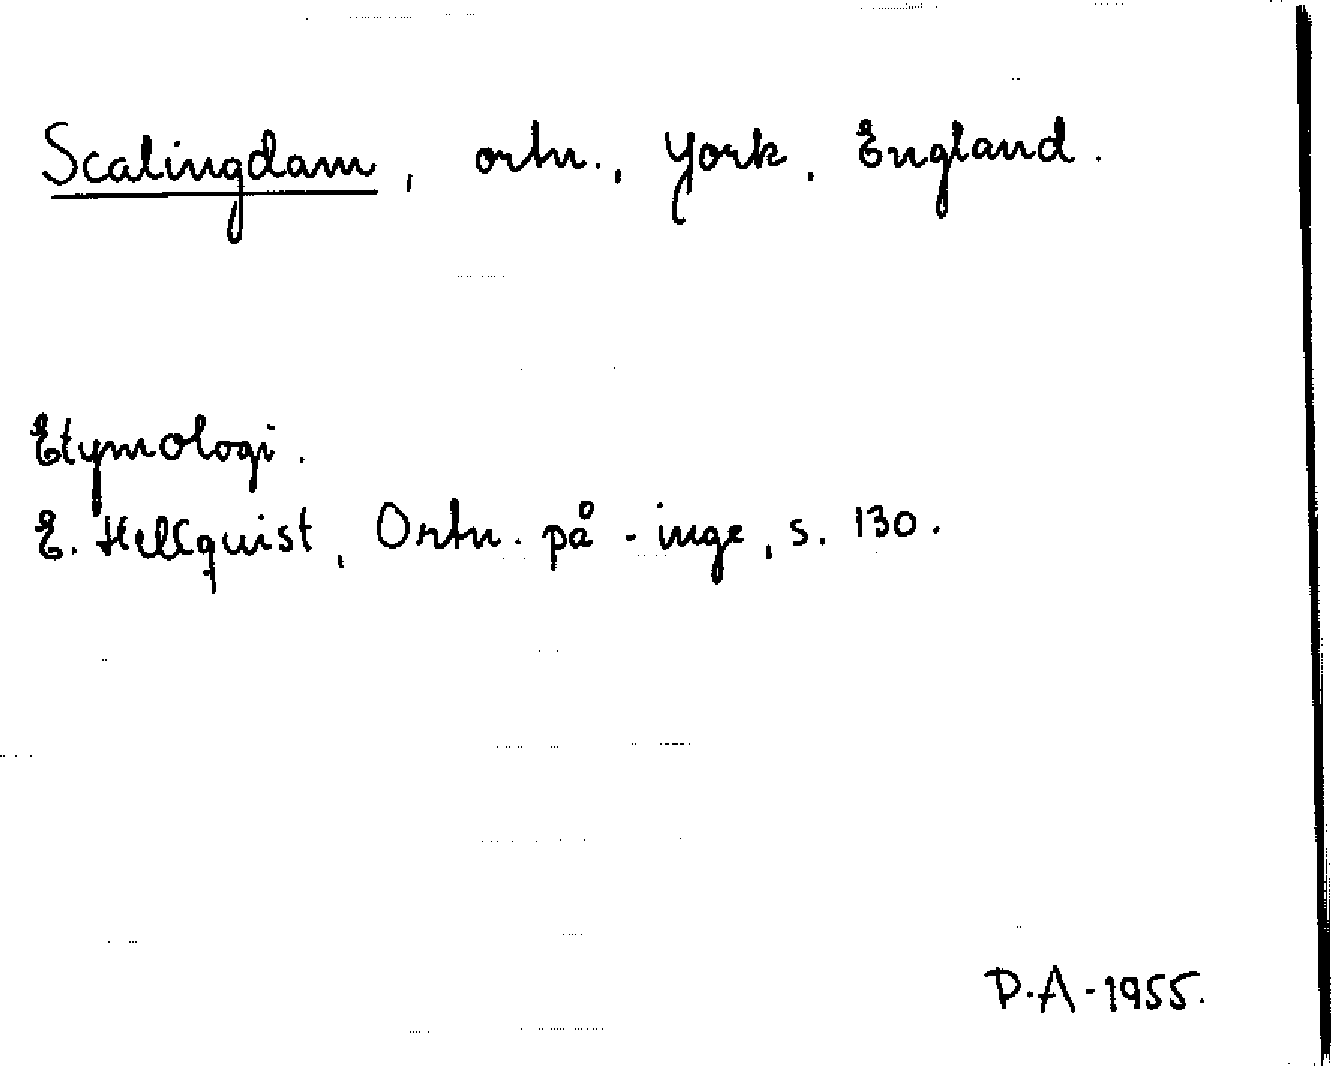 Scalingdam, ortn., York, England.
Etymologi.
E. Hellquist, Ortn. på -inge, s. 130.
D.A-1955.